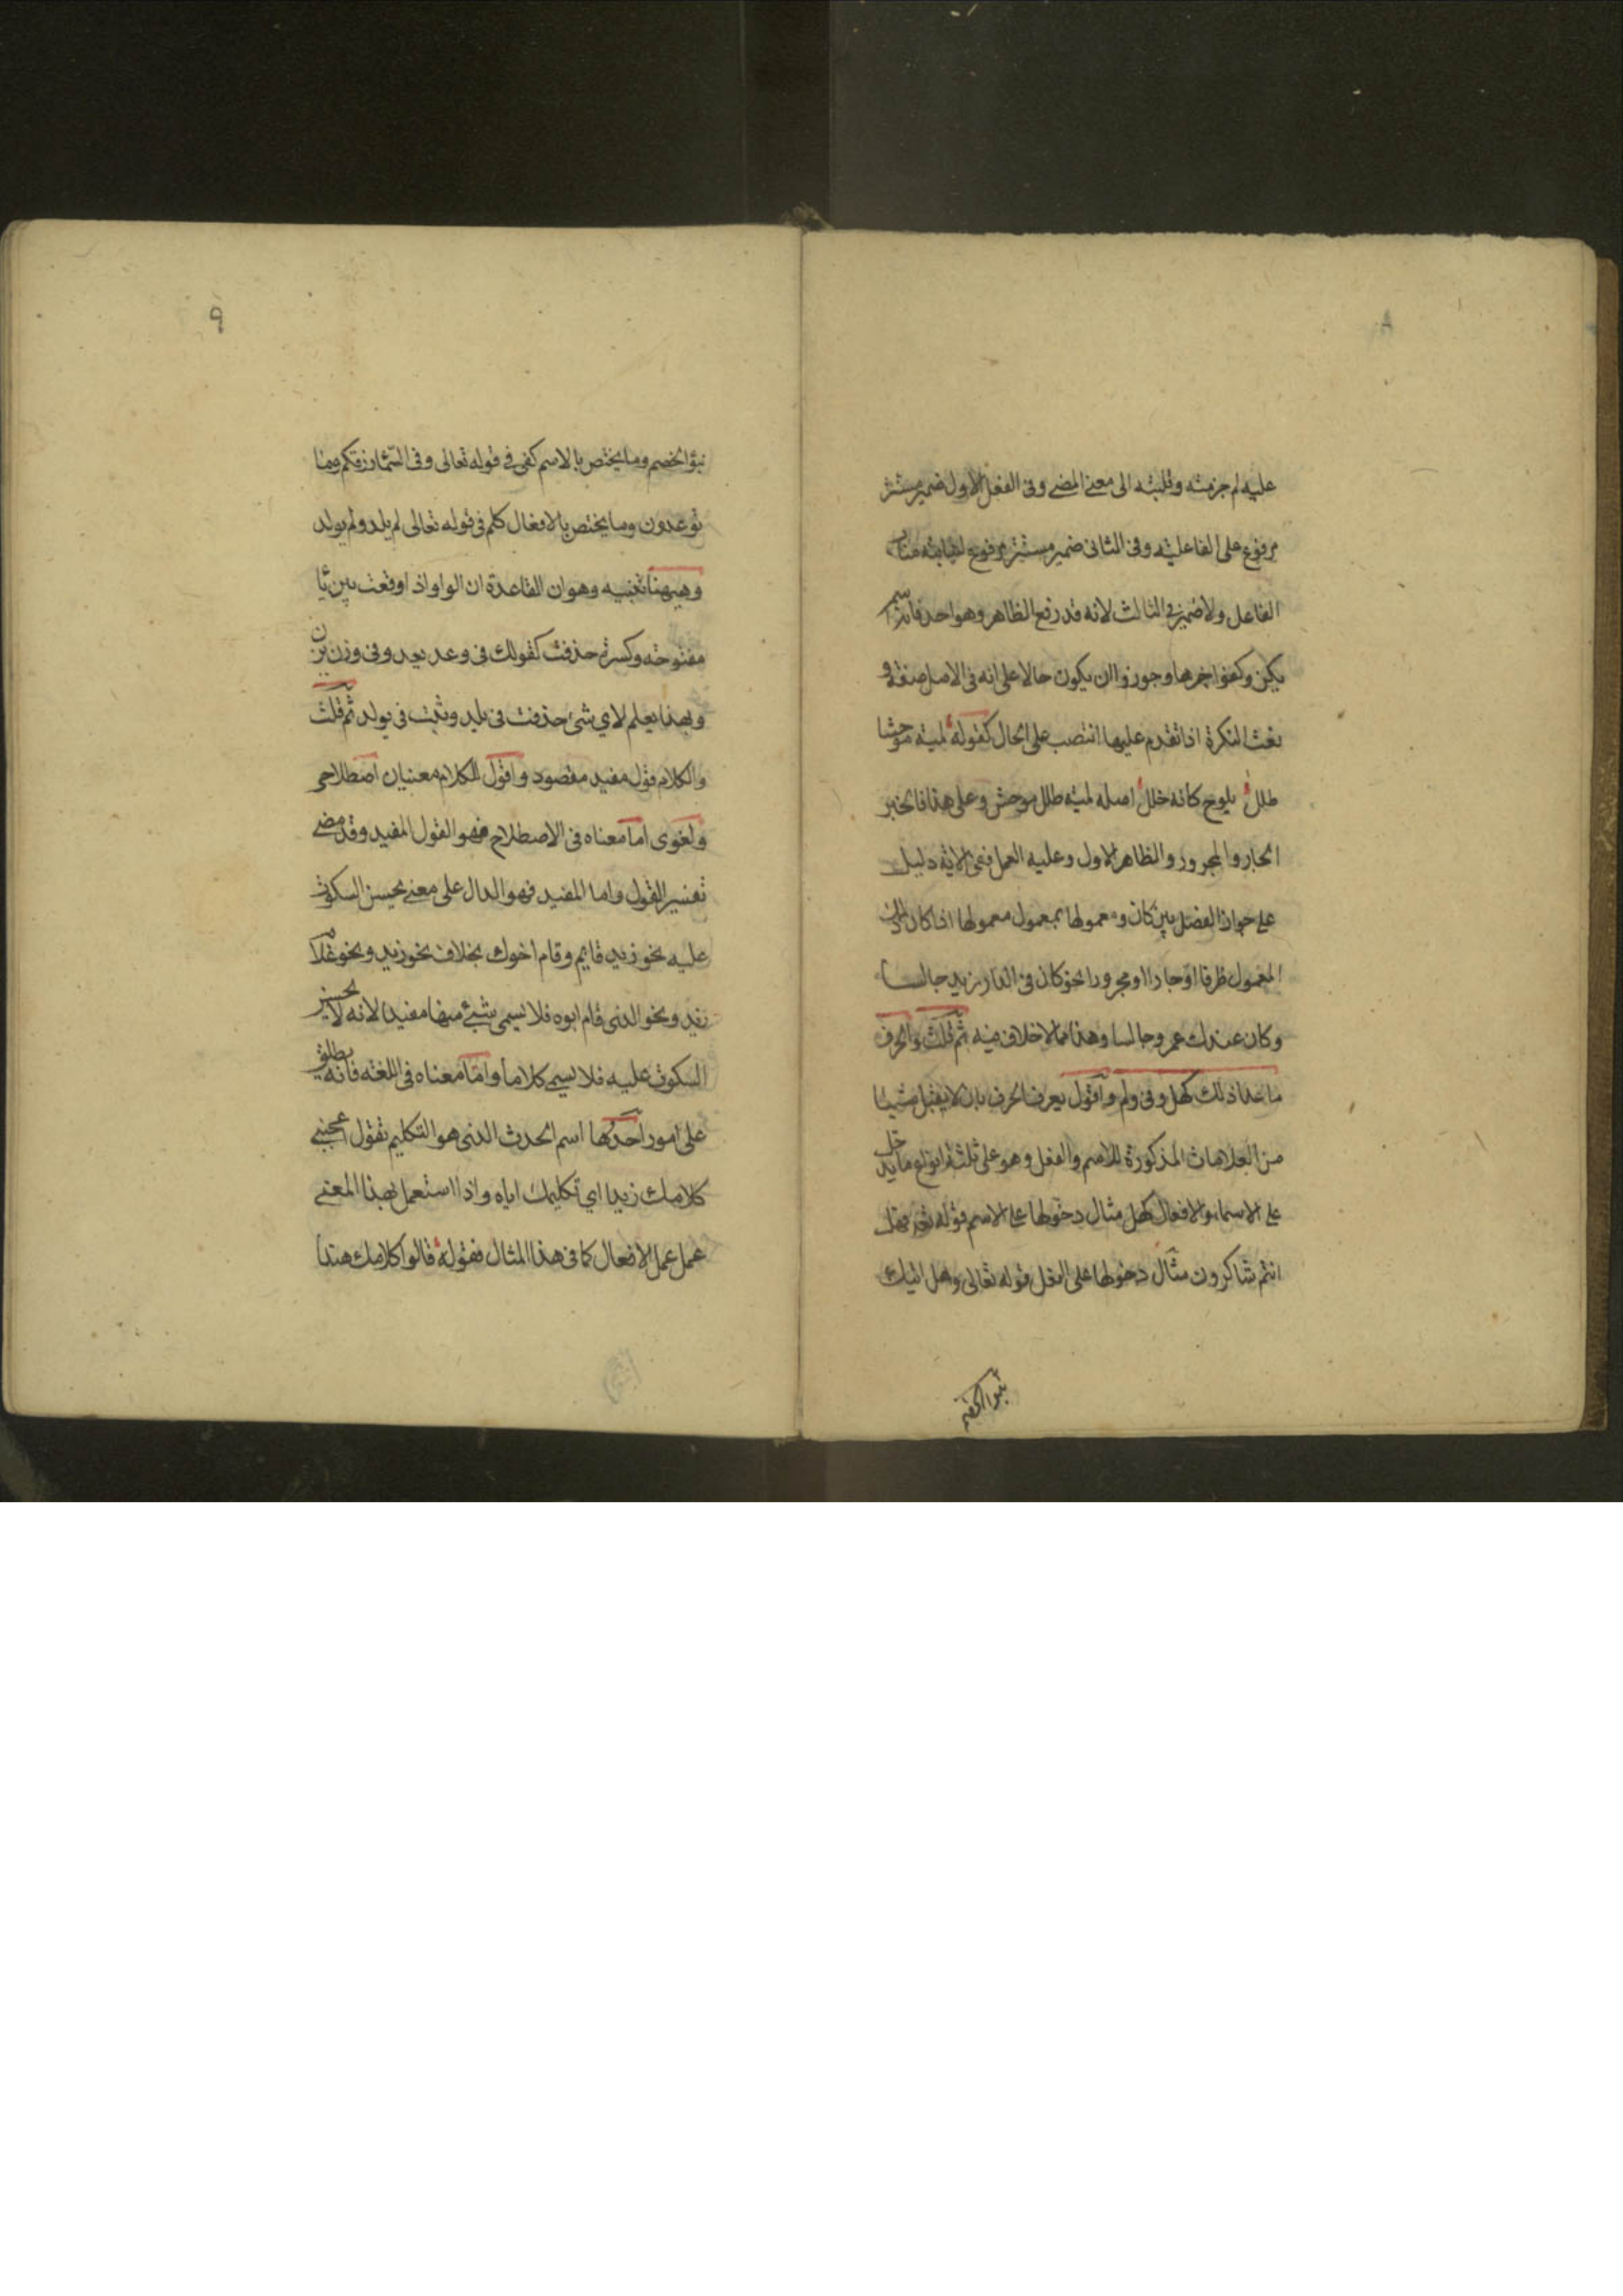 ٨
عليه لم جزمته وقلبته الى معنى المضي وفى الفعل الاول ضمير مستتر
مرفوع على الفاعلية وفى الثانى ضمير مستتر مرفوع لنيابته مناب
الفاعل ولا ضمير في الثالث لانه قد رفع الظاهر وهو احد فانه اسم
يكن وكفوا خبرها وجوزوا ان يكون حالا على انه فى الاصل صفة و
نعت النكرة اذا تقدم عليها انتصب على الحال كقوله لمية موحشا
طلل يلوح كانه خلل اصله لمية طلل موحش وعلى هذا فالخبر
الجار والمجرور والظاهر الاول وعليه العمل ففى الاية دليل
على جواز الفصل بين كان ومعمولها بمعمول معمولها اذا كان ذلك
المعمول ظرفا او جارا ومجرورا نحو كان فى الدار زيد جالسا
وكان عندك عمرو جالسا وهذا مما لا خلاف فيه ثم قلت والحرف
ما عدا ذلك كهل وفى ولم واقول يعرف الحرف بان لا يقبل شيئا
من العلامات المذكورة للاسم والفعل وهو على ثلثة انواع ما يدخل
على الاسماء والافعال كهل مثال دخولها على الاسم قوله تعر فهل
انتم شاكرون مثال دخولها على الفعل قوله تعالى وهل اتيك
نبوا الخصم
٩
نبؤا الخصم وما يختص بالاسم كفى في قوله تعالى وفى السماء رزقكم وما
توعدون وما يختص بالافعال كلم فى قوله تعالى لم يلد ولم يولد
وهيهنا تنبيه وهو ان القاعدة ان الواو اذا وقعت بين يا
مفتوحة وكسرة حذفت كقولك فى وعد يعد وفى وزن يزن
وبهذا يعلم لاي شئ حذفت فى يلد وثبت فى يولد ثم قلت
والكلام قول مفيد مقصود واقول للكلام معنيان اصطلاحى
ولغوى اما معناه فى الاصطلاح فهو القول المفيد وقد مضى
تفسير القول واما المفيد فهو الدال على معنى يحسن السكوت
عليه نحو زيد قايم وقام اخوك بخلاف نحو زيد ونحو غلام
زيد ونحو الذى قام ابوه فلا يسمى شئ منها مفيدا لانه لا يحسن
السكوت عليه فلا يسمى كلاما واما معناه فى اللغة فانه يطلق
على امور احدها اسم الحدث الذى هو التكليم تقول اعجبني
كلامك زيدا اي تكليمك اياه واذا استعمل بهذا المعنى
عمل عمل الافعال كما فى هذا المثال فقوله قالوا كلامك هندا